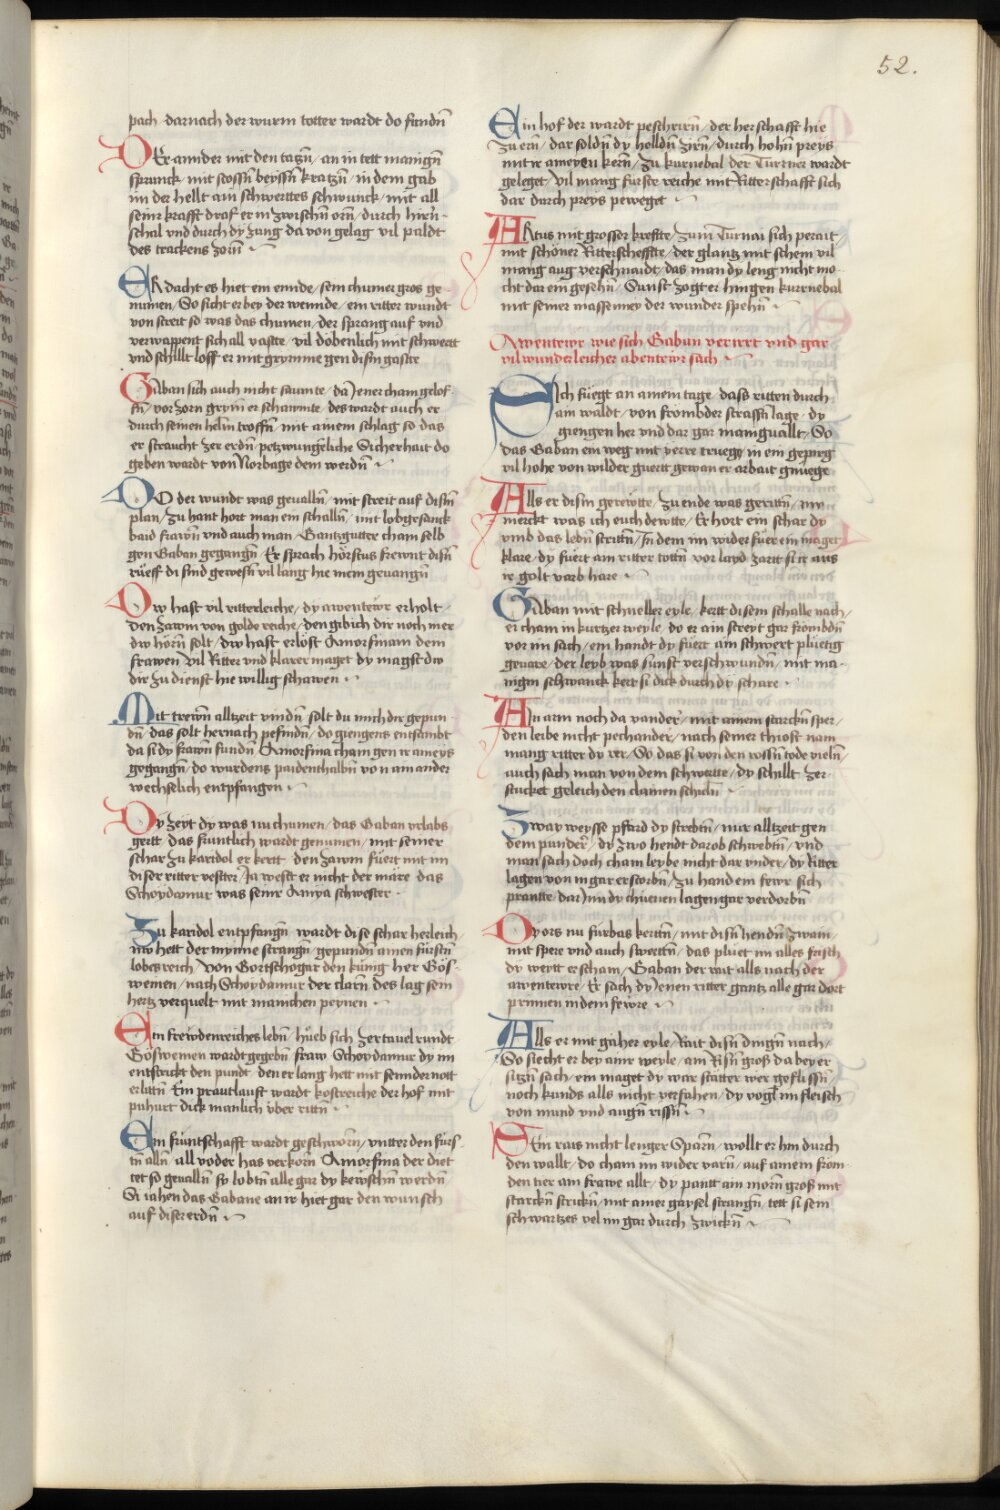 52.
pach darnach der wurm totter wardt do fundn̄
DEr annder mit den tatzn̄ / an in tett manign̄
sprunck / mit stossn̄ beyssn̄ kratzn̄ / in dem gab
im der hellt ain schwerttes schwunck / mit all
seinr krafft draf er in zwischn̄ orn̄ / durch hirn
schal vnd durch dy zung da von gelag vil paldt
des trackens zorn̄
ER dacht es hiet ein ennde / sein chumer gros ge
numen / So sicht er bey der wennde / ein ritter wundt
von streit so was das chumen / der sprang auf vnd
verwappent sich all vastte / vil döbenlich mit schwertt
vnd schillt loff er mit grymme gen disn̄ gastte
Gaban sich auch nicht saumte / da Jener cham gelof
fn̄ / vor zorn grym er schaumte / des wardt auch er
durch seinen helm troffn̄ / mit ainem schlag so das
er straucht zer erdn̄ / petzwungenliche Sicherhait do
geben wardt von Norbage dem werdn̄
DO der wunde was geualln̄ / mit streit auf disn̄
plan / zu hant hort man ein schalln̄ / mit lobgesanck
baid frawn̄ vnd auch man / Gantzgutter cham selb
gen Gaban gegangn̄ Er sprach hörstus frewnt disn̄
rüeff di sind gewesn̄ vil lang hie mein geuangn̄
DW hast vil ritterleiche / dy awentewr erholt
Den zawm von golde reiche / den gib ich dir noch mer
dw hörn̄ solt / dw hast erlöst Amorfinam dem
frawen vil Ritter vnd klarer maget dy magst dw
dir zu dienst hie willig schawen
Mit trewn̄ alltzeit vindn̄ solt du mich dir gepun
dn̄ das solt hernach pefindn̄ / do giengens entsambt
da si dy frawn̄ fundn̄ Amorfina cham gen ir ameys
gegangn̄ / do wurdens paidenthalbn̄ von ain ander
wechslich entpfangen
DY zeyt dy was nu chumen / das Gaban vrlabs
gertt das fruntlich wardt genumen / mit seiner
schar zu karidol er kertt den zawm füert mit im
diser ritter vestter / Ja west er nicht der märe das
Schoydamur was seinr Amya schwester
Zu karidol entpfangn̄ wardt dise schar herleich
nw hett der mynne strangn̄ gepundn̄ ainen fürstn̄
lobes reich / von Gortschogar den künig her Gös
wemen / nach Schoydamur der clarn̄ des lag sein
hertz verquelt mit manichen peynen
Ein frewdenreiches lebn̄ hueb sich zer tauel rundt
Göswemen wardt gegebn̄ fraw Schoydamur dy im
entstrickt den pundt den er lang hett mit seinder nott
erlittn̄ Ein prautlaufft wardt kostreiche der hof mit
puhurt dick manlich über rittn̄
Ein fruntschafft wardt geschworn̄ / vntter den fürs
tn̄ alln̄ / all voder has verkorn̄ Amorfina der diet
tet so geualln̄ so lobtn̄ alle gar dy kewschn̄ werdn̄
Si iahen das Gabane an ir hiet gar den wunsch
auf diser erdn̄
Ein hof der wardt peschrirn̄ / der herschafft hie
zu ern̄ / dar soldn̄ dy helldn̄ zirn̄ / durch hohn̄ preys
mit ir ameyen kern̄ / zu kurnebal der Turner wardt
geleget / vil mang fürste reiche mit Ritterschafft sich
dar durch preys peweget
ARtus mit grosser kreffte / zum Turnai sich perait
mit schöner Ritterscheffte / der glantz mit schein vil
mang aug verschnaidt / das man dy leng nicht mo
cht dar ein gesehn̄ / Sunst zogt er hingen kurnebal
mit seiner masseney der wunder spehn̄
Awentewr wie sich Gaban verirret vnd gar
vil wunderleicher abentewr sach
Sich füegt an ainem tage / dass ritten durch
ain waldt / von frombder strassn̄ lage / dy
giengen her vnd dar gar manigualt / So
das Gaban ein weg mit verre truege / in ein gepirg
vil hohe von wilder guertt gewan er arbait gnuege
Alls er disin gereitte / zu ende was gerittn̄ / nw
merckt was ich euch dewtte / Er hort ein schar dy
vmb das lebn̄ strittn̄ / In dem im wider fuer ein maget
klare / dy füert ain ritter tottn̄ vor layd zartt si ir aus
ir golt varb hare
Gaban mit schneller eyle / kertt disem schalle nach /
er cham in kurtzer weyle / do er ain streyt gar frombdn̄
vor im sach / ein handt dy füert ain schwert plüetig
geuare / der leyb was sunst verschwundn̄ / mit ma
nigm schwanck kert si dick durch dy schare
Ain arm noch da vander / mit ainem starckn̄ sper /
den leibe nicht pechander / nach seiner thiost nam
mang ritter dy rer / So das si von den rossn̄ tode vieln̄
auch sach man von dem schwertte / dy schillt zer
stucket geleich den clainen schidn̄
Zwar weysse pfärd dy strebtn̄ / nur alltzeit gen
dem punder / dy zwo hendt darob schwebtn̄ / vnd
man sach doch cham leybe nicht dar vnder / dy Ritter
lagen von in gar erstorbn̄ / zu hand ein fewr sich
prantte / dar Inn dy chuenen lagen gar verdorbn̄
DY ors nu fürbas kertn̄ / mit disn̄ hendn̄ zwain /
mit spere vnd auch swerttn̄ / das pluet im alles frisch
dy weytt erscham / Gaban der rait alls nach der
awentewre / Er sach dy Jenen ritter gantz alle gar dort
prinnen in dem fewre
Alls er mit gaher eyle / Rait disn̄ dingn̄ nach /
So siecht er bey ainr weyle / ain Risn̄ groß da bey er
sitzn̄ sach / ein maget dy war stätter wer geflissn̄
noch kunds alls nicht verfahen / dy vogl im fleisch
von mund vnd augn̄ rissn̄
SEin rais nicht lenger Sparn̄ / wollt er hin durch
den wallt / do cham im wider varn̄ / auf ainem from
den tier ain frawe allt / dy pantt ain morn̄ groß mit
starckn̄ strickn̄ / mit ainer gaysel strangn̄ / tett si sein
schwartzes vel im gar durch zwickn̄